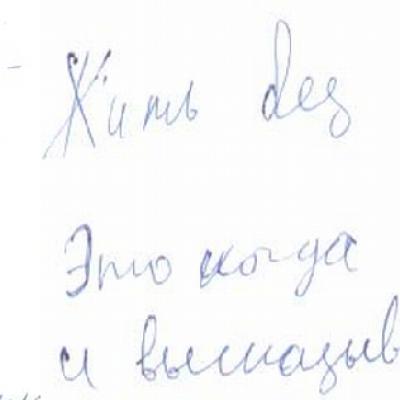 Жить без
Это когда
и высказыв